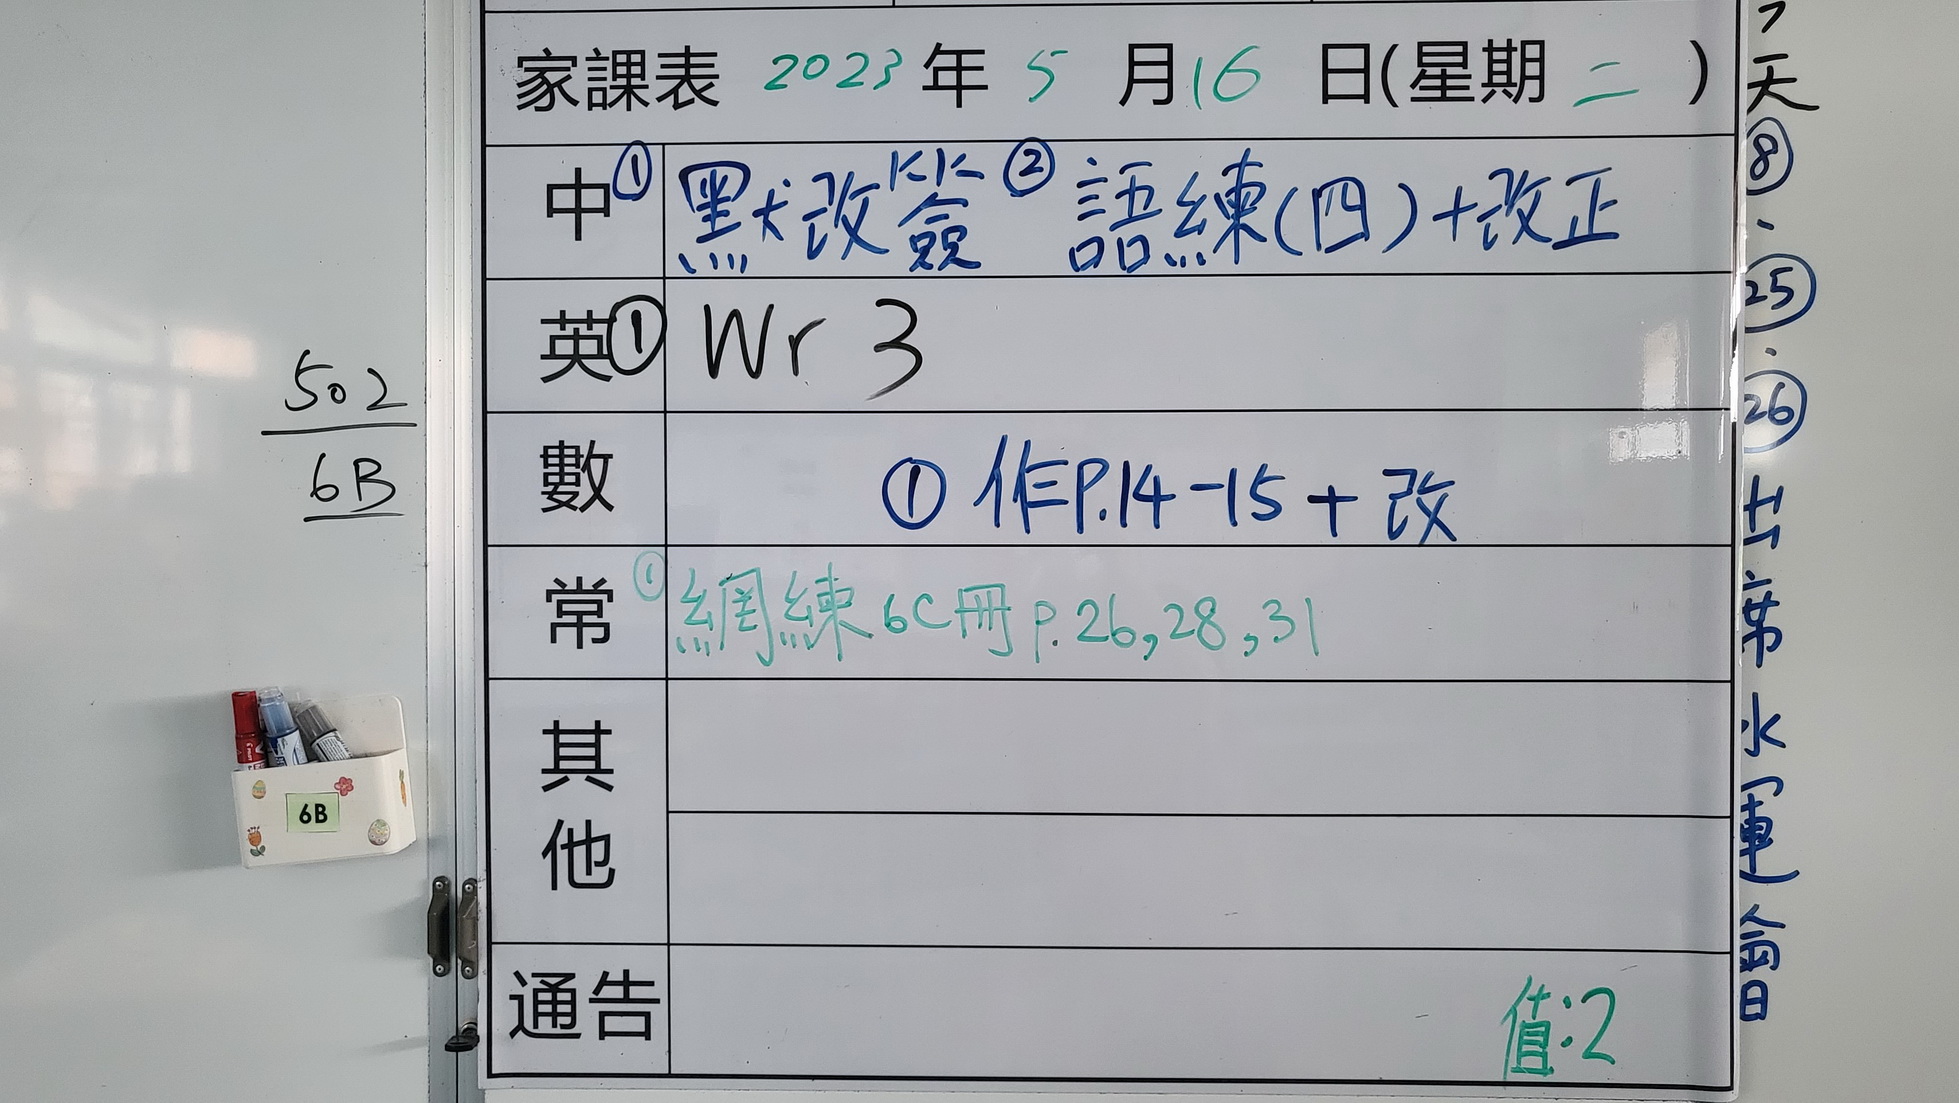 家課表 2023 年 5 月 16 日(星期 二 )
中 ① 默改簽 ② 語練(四)+改正
英 ① Wr 3
數 ① 作P.14-15 + 改
常 ① 網練 6C冊 p.26,28,31
其他
通告 值:2
502
6B
6B
天⑧、㉕、㉖出席水運會